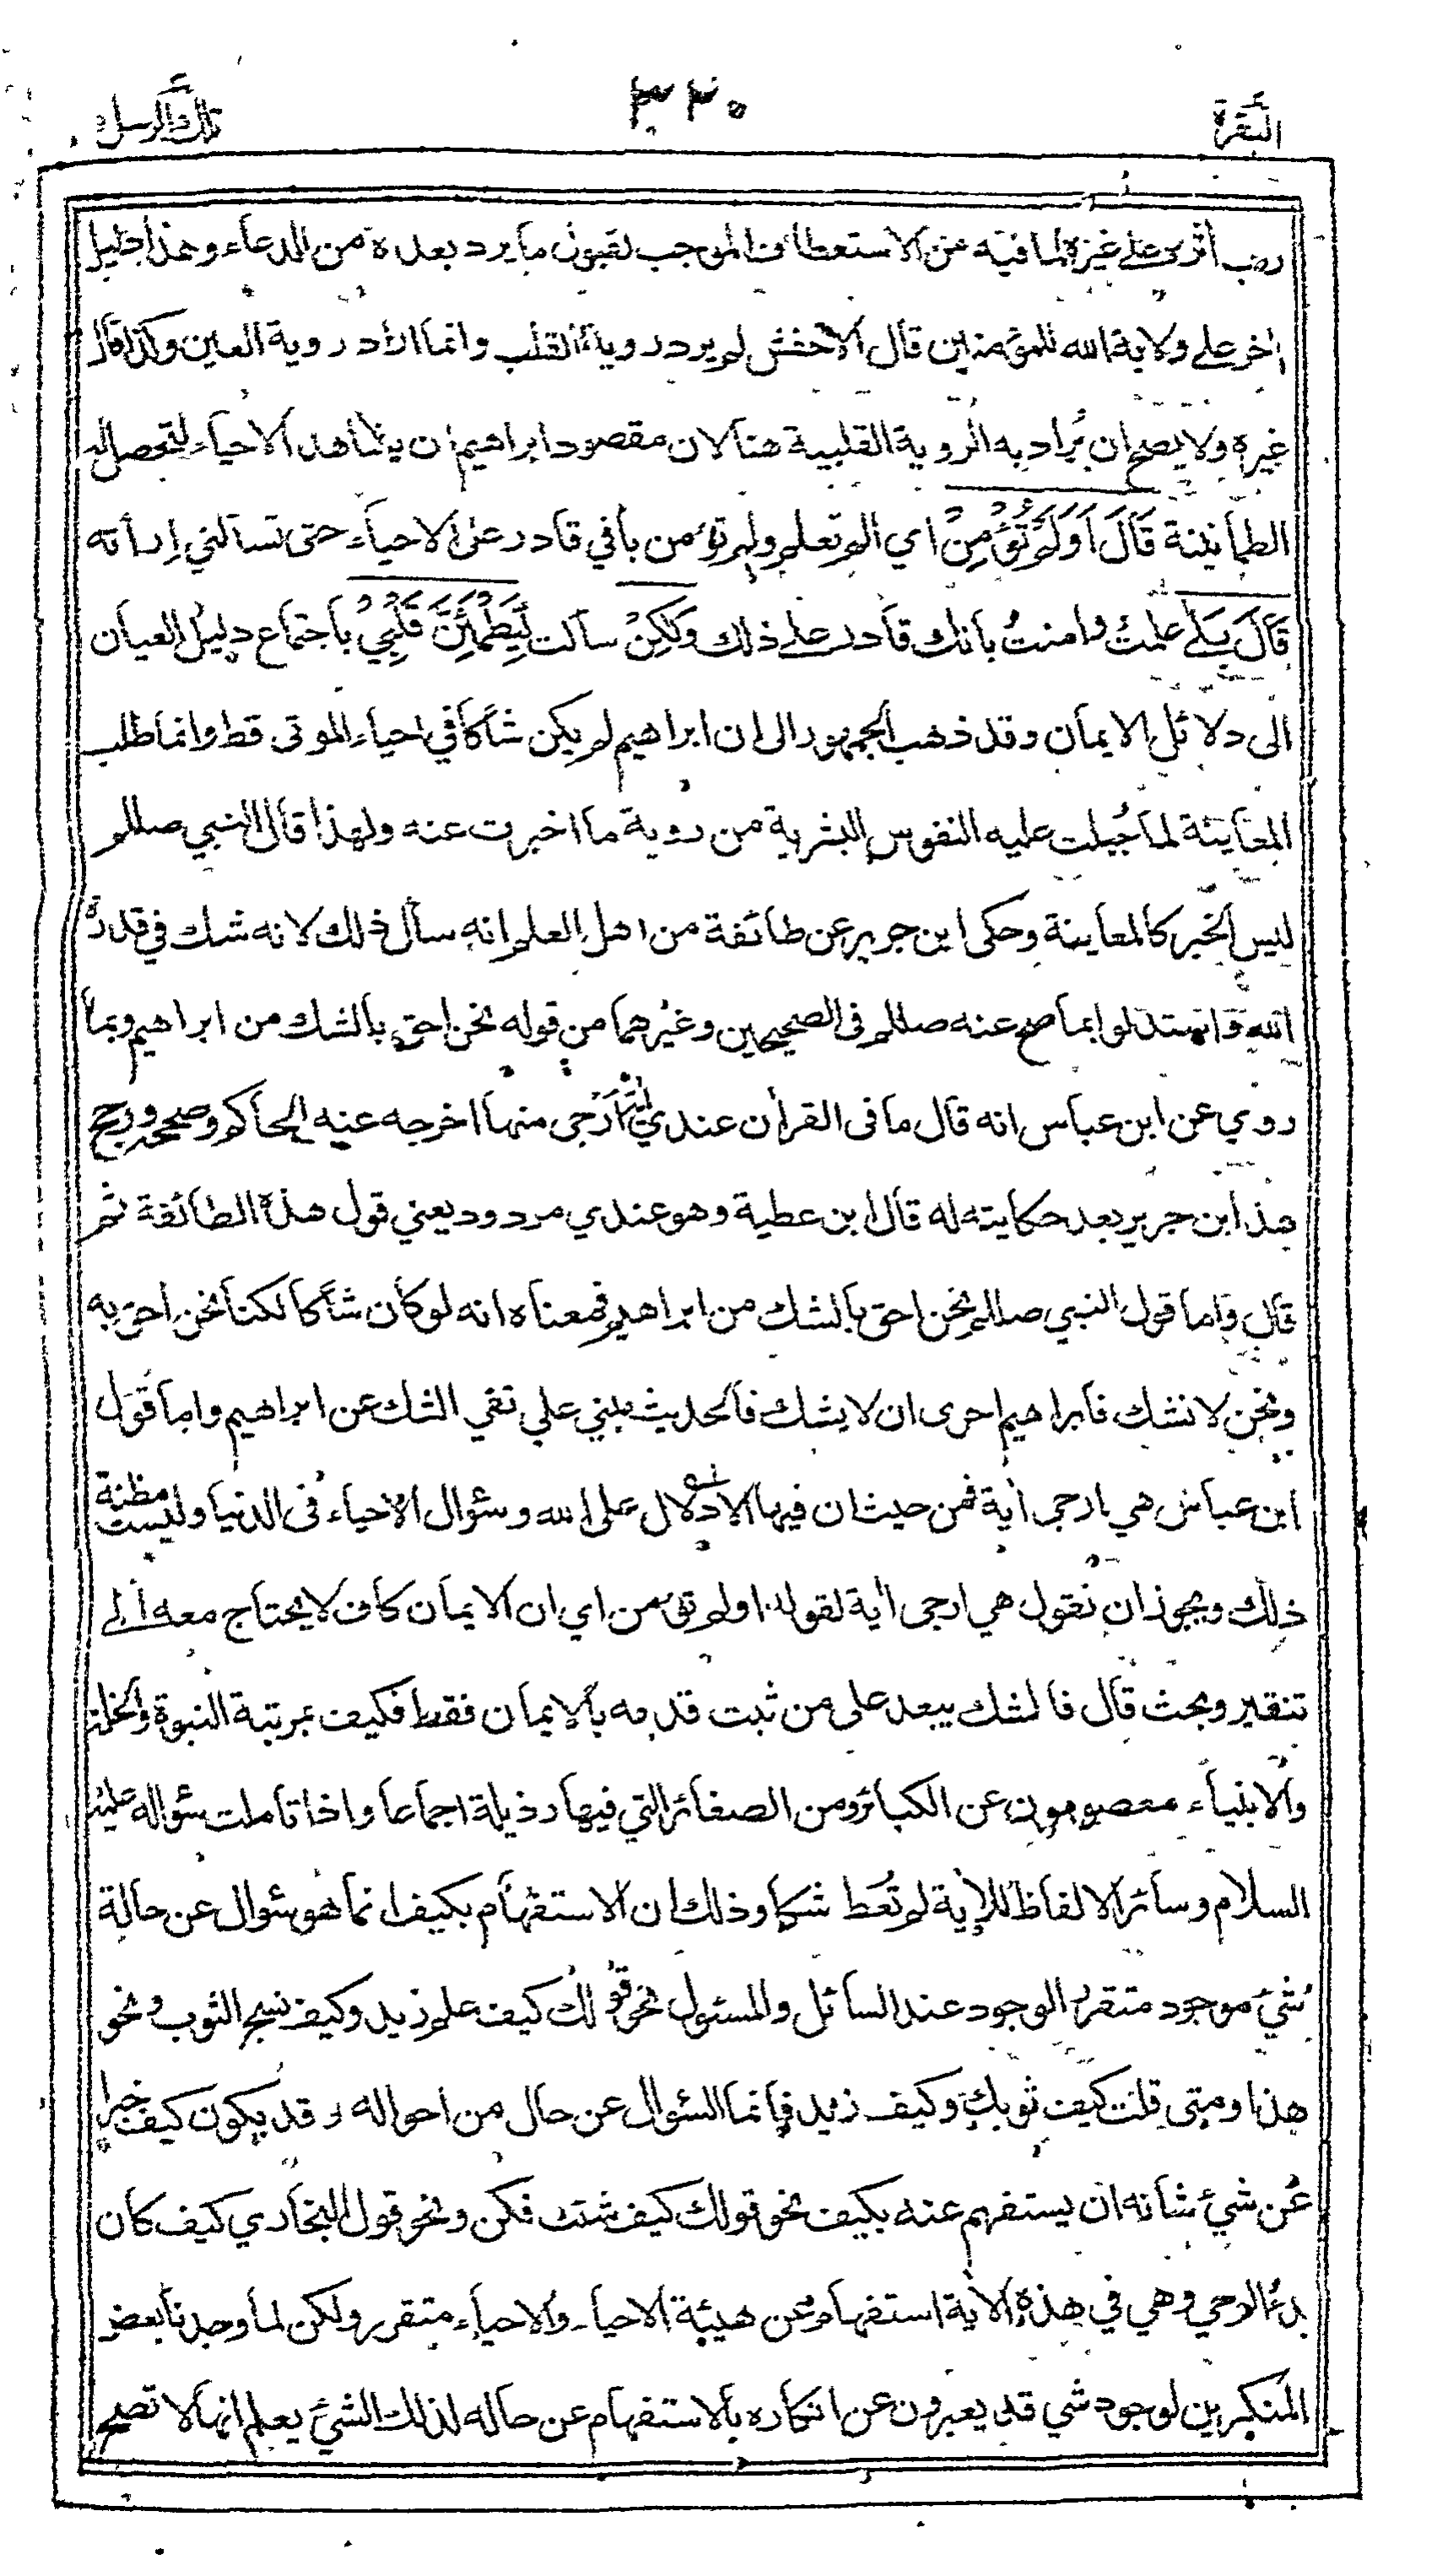 البقرة
٣٢٠
تلك الرسل
رب أثره على غيره لما فيه من الاستعطاف الموجب لقبول ما يرد بعده من الدعاء وهذا دليل
اخر على ولاية الله للمؤمنين قال الاخفش لم يرد روية القلب وانما اراد روية العين وكذا قال
غيره ولا يصح ان يُراد به الروية القلبية هنا لان مقصود ابراهيم ان يشاهد الاحياء لتحصل له
الطمأنينة قَالَ أَوَلَمْ تُؤْمِنْ اي الم تعلم ولم تؤمن باني قادر على الاحياء حتى تسألني إراءته
قَالَ بَلٰى علمتُ وامنتُ بانك قادر على ذلك وَلٰكِنْ سألت لِيَطْمَئِنَّ قَلْبِيْ باجتماع دليل العيان
الى دلائل الايمان وقد ذهب الجمهور الى ان ابراهيم لم يكن شاكا في احياء الموتى قط وانما طلب
المعاينة لما جُبلت عليه النفوس البشرية من روية ما اخبرت عنه ولهذا قال النبي صللم
ليس الخبر كالمعاينة وحكى ابن جرير عن طائفة من اهل العلم انه سأل ذلك لانه شك في قدرة
الله واستدلوا بما صح عنه صللم فى الصحيحين وغيرهما من قوله نحن احق بالشك من ابراهيم وبما
روي عن ابن عباس انه قال ما فى القرأن عندي اية ارجى منها اخرجه عنه الحاكم وصححه ورجح
هذا ابن جرير بعد حكايته له قال ابن عطية وهو عندي مردود يعني قول هذه الطائفة ثم
قال واما قول النبي صللم نحن احق بالشك من ابراهيم فمعناه انه لو كان شاكا لكنا نحن احق به
ونحن لا نشك فابراهيم احرى ان لا يشك فالحديث مبني على نفي الشك عن ابراهيم واما قول
ابن عباس هي ارجى أية فمن حيث ان فيها الادلال على الله وسؤال الاحياء فى الدنيا وليست مظنة
ذلك ويجوز ان نقول هي ارجى أية لقوله اولم تؤمن اي ان الايمان كاف لا يحتاج معه الى
تنقير وبحث قال فالشك يبعد على من ثبت قدمه بالايمان فقط فكيف بمرتبة النبوة والخلة
والانبياء معصومون عن الكبائر ومن الصغائر التي فيها رذيلة اجماعا واذا تأملت سؤاله عليه
السلام وسائر الالفاظ للأية لم تُعط شكا وذلك ان الاستفهام بكيف انما هو سؤال عن حالة
شيء موجود متقرر الوجود عند السائل والمسئول نحو قولك كيف علم زيد وكيف نسج الثوب ونحو
هذا ومتى قلت كيف ثوبك وكيف زيد فانما السؤال عن حال من احواله وقد يكون كيف خبرا
عن شيء شانه ان يستفهم عنه بكيف نحو قولك كيف شئت فكن ونحو قول البخاري كيف كان
بدء الوحي وهي في هذه الأية استفهام عن هيئة الاحياء والاحياء متقرر ولكن لما وجدنا بعض
المنكرين لوجود شي قد يعبرون عن انكاره بالاستفهام عن حاله لذلك الشيء يعلم انها لا تصح